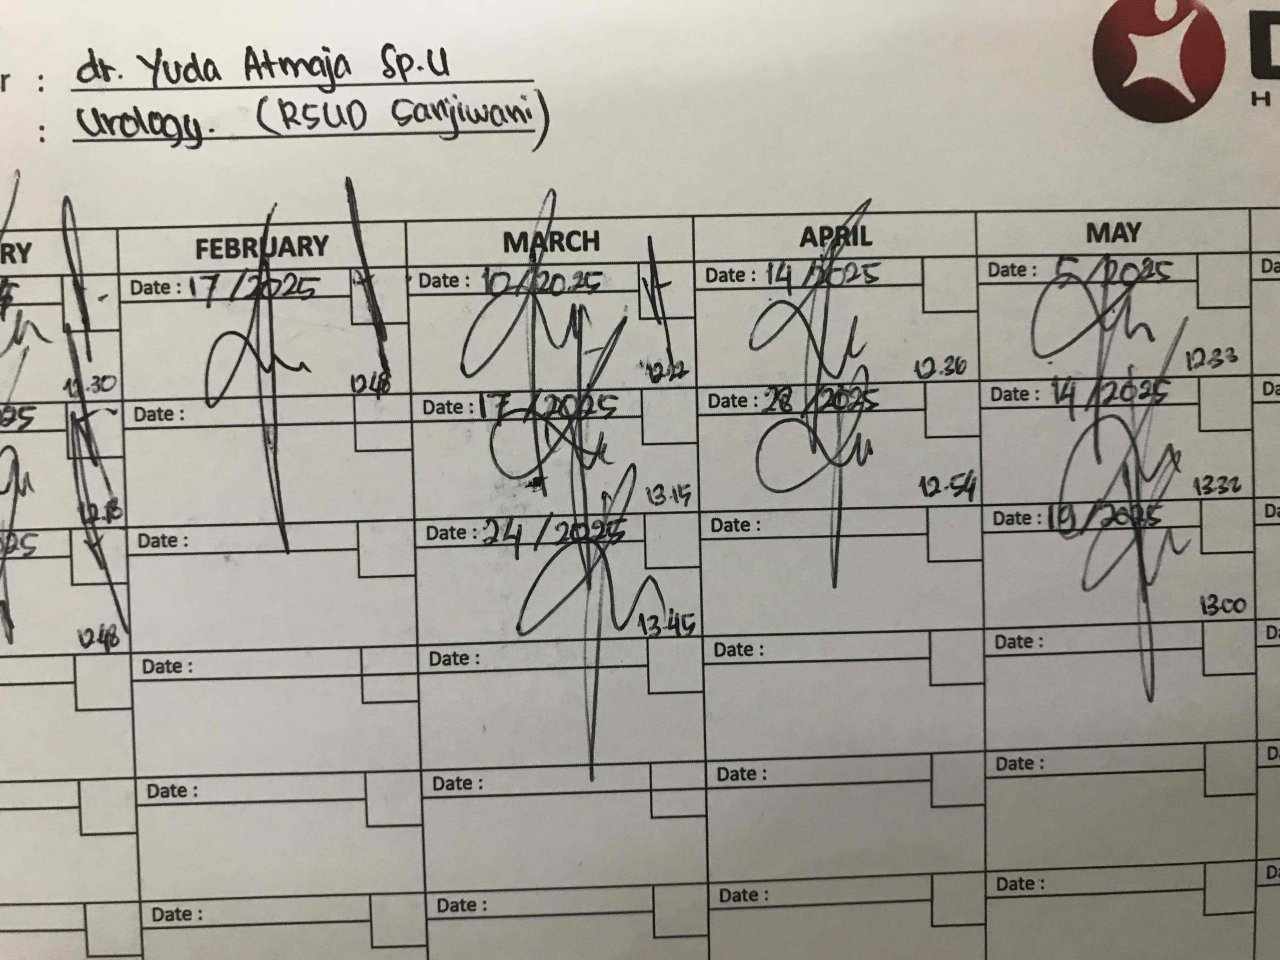 r : dr. Yuda Atmaja Sp.U
: Urology. (RSUD Sanjiwani)
D
H
RY FEBRUARY MARCH APRIL MAY
Date : 17/2025 Date : 10/2025 Date : 14/2025 Date : 5/2025 Da
12.30 12.48 12.22 12.36 12.33
25 Date : Date : 17/2025 Date : 28/2025 Date : 14/2025 Da
13.15 12.54 13.32
25 Date : Date : 24/2025 Date : Date : 19/2025 Da
12.48 13.45 13.00
Date : Date : Date : Date : D
Date : Date : Date : Date : D
Date : Date : Date : Date : Da